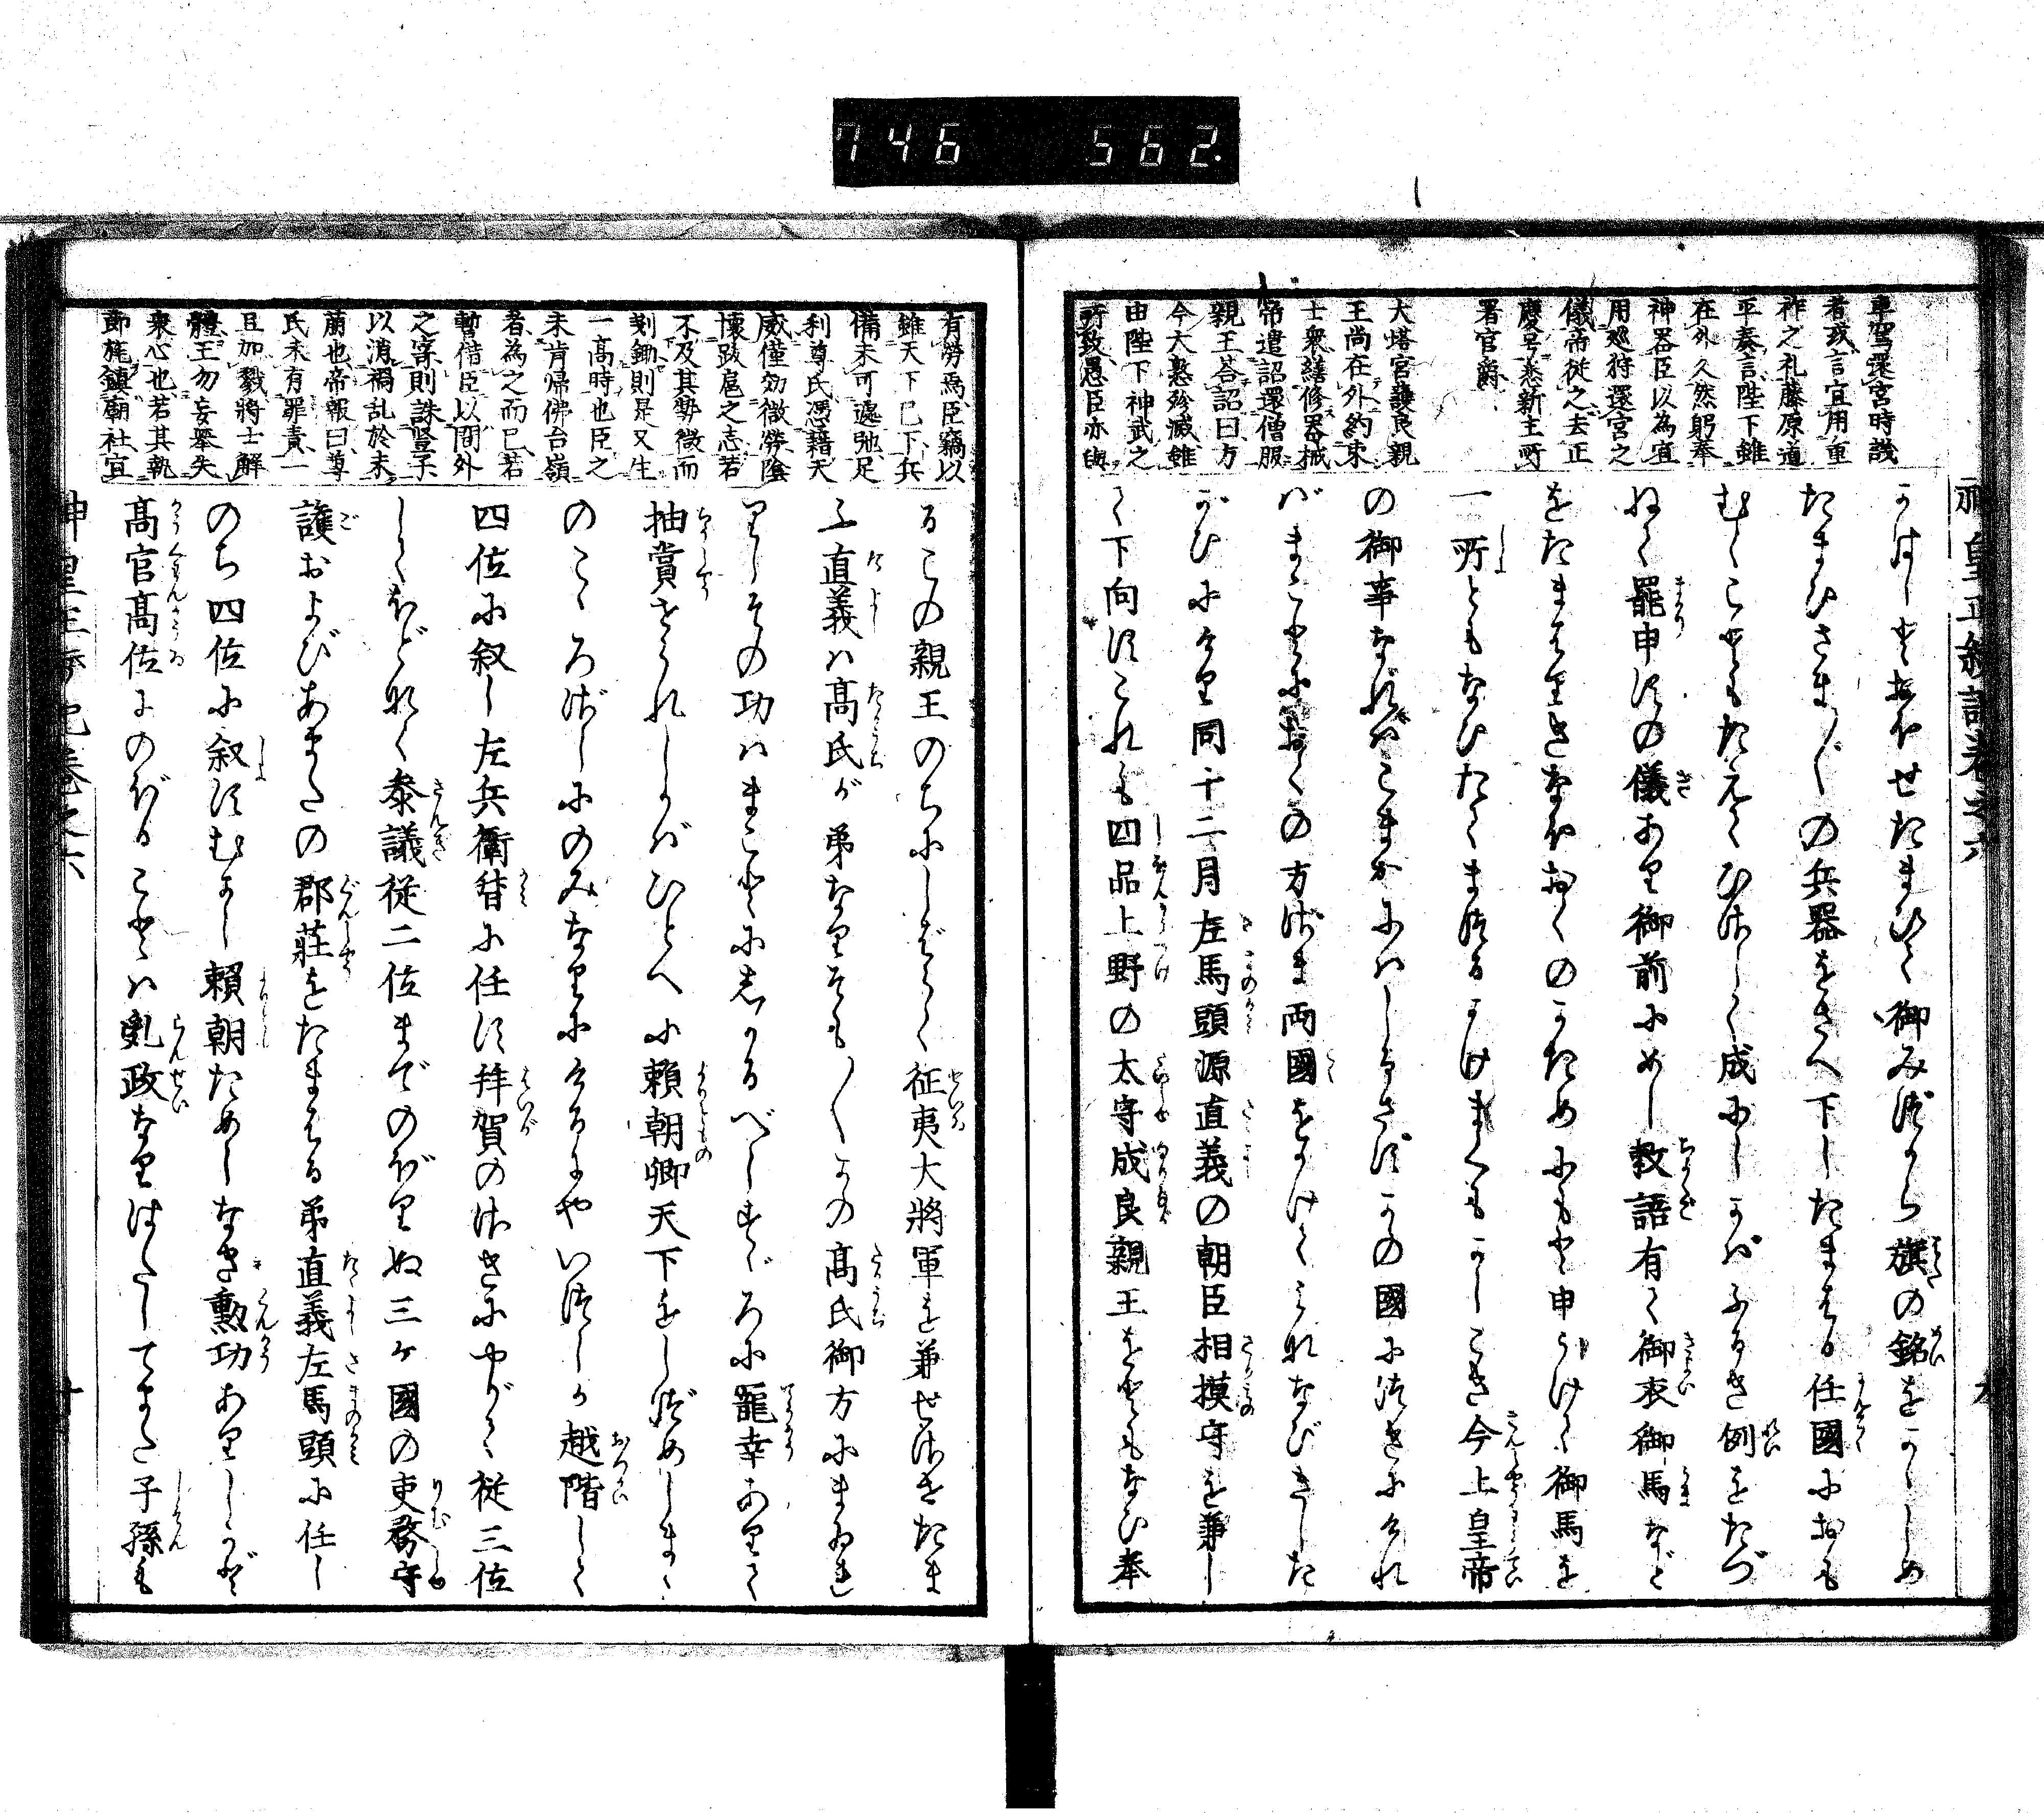 746 562.
車駕還宮時議
者或言宜用重
祚之礼藤原道
平奏言陛下雖
在外久然躬奉
神器臣以為宜
用巡狩還宮之
儀帝従之去正
慶号悉新主所
署官爵
大塔宮護良親
王尚在外約束
士衆繕修器械
帝遣詔還僧服
親王答詔曰方
今大憝殄滅雖
由陛下神武之
所致愚臣亦與
かはしまおはせたまひて御みづから旗の銘をかゝしめ
たまひさま〴〵の兵器をさへ下したまはる任國におも
むくこともたえてひさしく成にしかばふるき例をたづ
ねて罷申の儀あり御前にめし敕語有て御衣御馬など
をたまはりきなほおくのかためにもと申うけて御馬を
一所ともなひたてまつるかけまくもかしこき今上皇帝
の御事なればこまかにはしるさずかの國につきにけれ
ばまことにおくの方ざま両國をかけてみなゝびきした
がひにけり同十二月左馬頭源直義の朝臣相摸守を兼し
て下向すこれも四品上野の太守成良親王をともなひ奉
有勞焉臣竊以
雖天下已下兵
備未可遽弛足
利尊氏憑藉天
威僅効微勞陰
懐跋扈之志若
不及其勢微而
刻鋤則是又生
一高時也臣之
未肯帰佛台嶺
者為之而已若
暫借臣以閫外
之寄則誅豎子
以消禍乱於未
萠也帝報曰尊
氏未有罪責一
旦加戮將士解
體王勿妄擧失
衆心也若其執
節旄鎮廟社宜
るこの親王のちにしばらく征夷大將軍を兼せさせたま
ふ直義ハ高氏が弟なりそも〳〵かの高氏御方にまゐれ
りしその功ハまことにしかるべしすゞろに寵幸ありて
抽賞せられしかばひとへに賴朝卿天下をしづめしまゝ
のこゝろざしにのみなりにけるにやいつしか越階して
四位に叙し左兵衛督に任す拜賀のさきにやがて從三位
しくほどなく參議從二位までのぼりぬ三ケ國の吏務守
護およびあまたの郡莊をたまはる弟直義左馬頭に任し
のち四位に叙すむかし賴朝ためしなき勲功ありしかど
高官高位にのぼることハ亂政なりはたしてまた子孫も